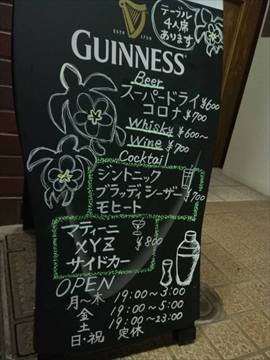 テーブル
4人席
あります
ESTD 1759
GUINNESS
Beer
スーパードライ ¥600
コロナ ¥700
Whisky ¥600~
Wine ¥700
Cocktail
ジントニック
ブラッディシーザー ¥700
モヒート
マティーニ
XYZ ¥800
サイドカー
OPEN
月~木 19:00~3:00
金 19:00~5:00
土 19:00~23:00
日・祝 定休